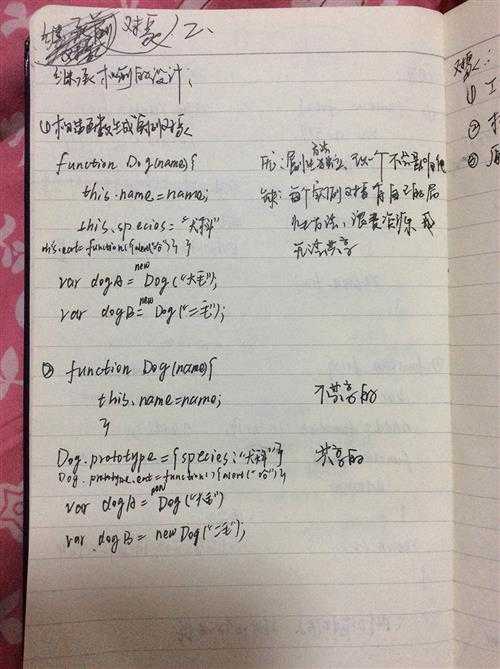 对象 2、
继承机制的设计;
① 构造函数生成实例对象
function Dog(name){
优: 属性方法独立, 改一个不会影响其他
this.name=name;
缺: 每个实例对象有自己的属
this.species="犬科"
性方法, 浪费资源 且
this.eat=function(){alert("吃")} }
无法共享
var dogA = new Dog("大毛");
var dogB = new Dog("二毛");
② function Dog(name){
this.name=name;
不共享的
}
Dog.prototype={species:"犬科"}
共享的
Dog.prototype.eat=function(){alert("吃")};
var dogA = new Dog("大毛")
var dogB = new Dog("二毛");
对象:
①
②
③